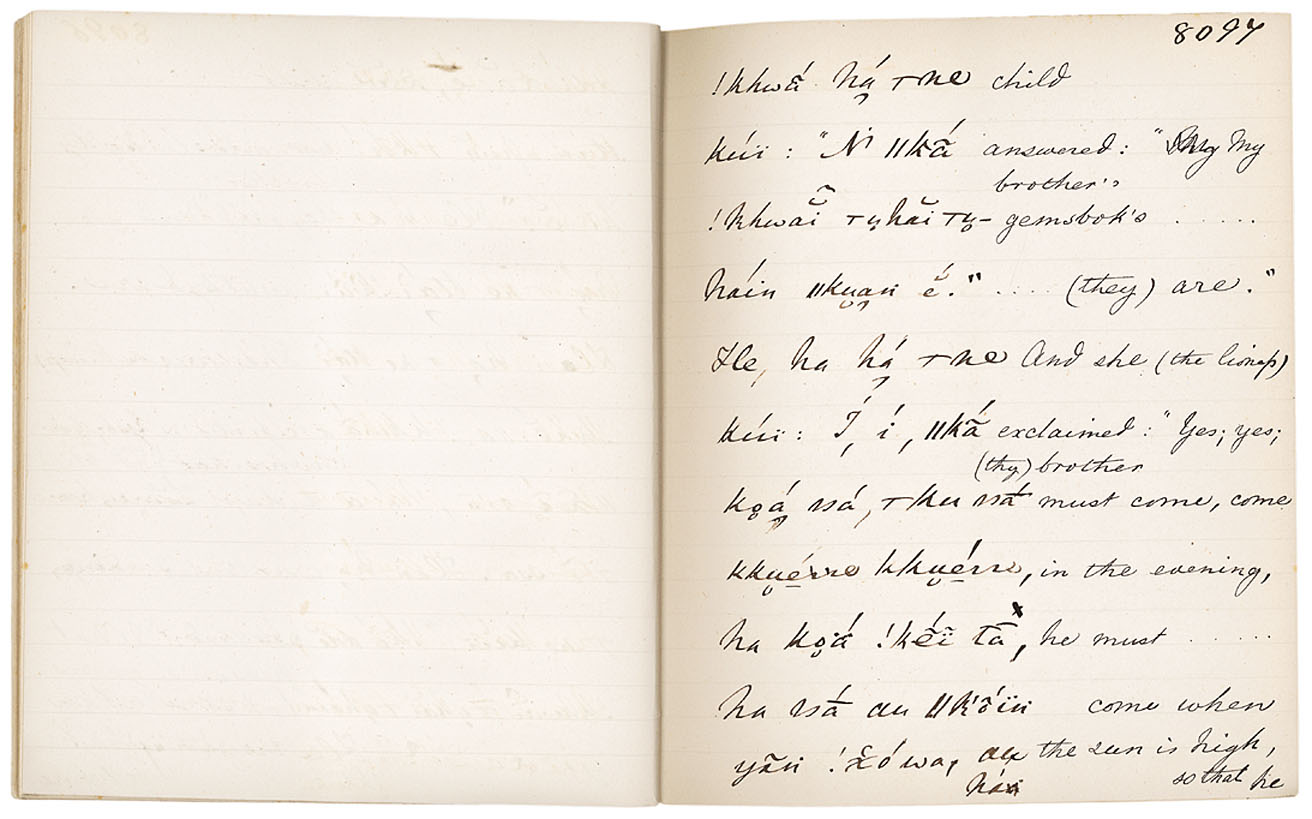 8097
!khwā́ há̤ ꞇne child
kúï : " Ń ǁkā́ answered : " My
brother's
!khwāĭ̃ ꞇu̯hăi ꞇu̯- gemsbok's . . . . .
háin ǁku̯a̤n é̆." . . . . (they) are."
He, ha há̤ ꞇne And she (the lioness)
kúï : Í, í, ǁkā́ exclaimed : " Yes; yes;
(thy) brother
ko̤á̤ ssá, ꞇku ssā́ must come, come
kkṳérre kkṳérre, in the evening,
ha ko̤ā́ !kḗ̃ï tā̃ ˣ, he must . . . . .
ha ssā́ au ǁkṍïn come when
yān !x́ówa, au the sun is high,
hán so that he